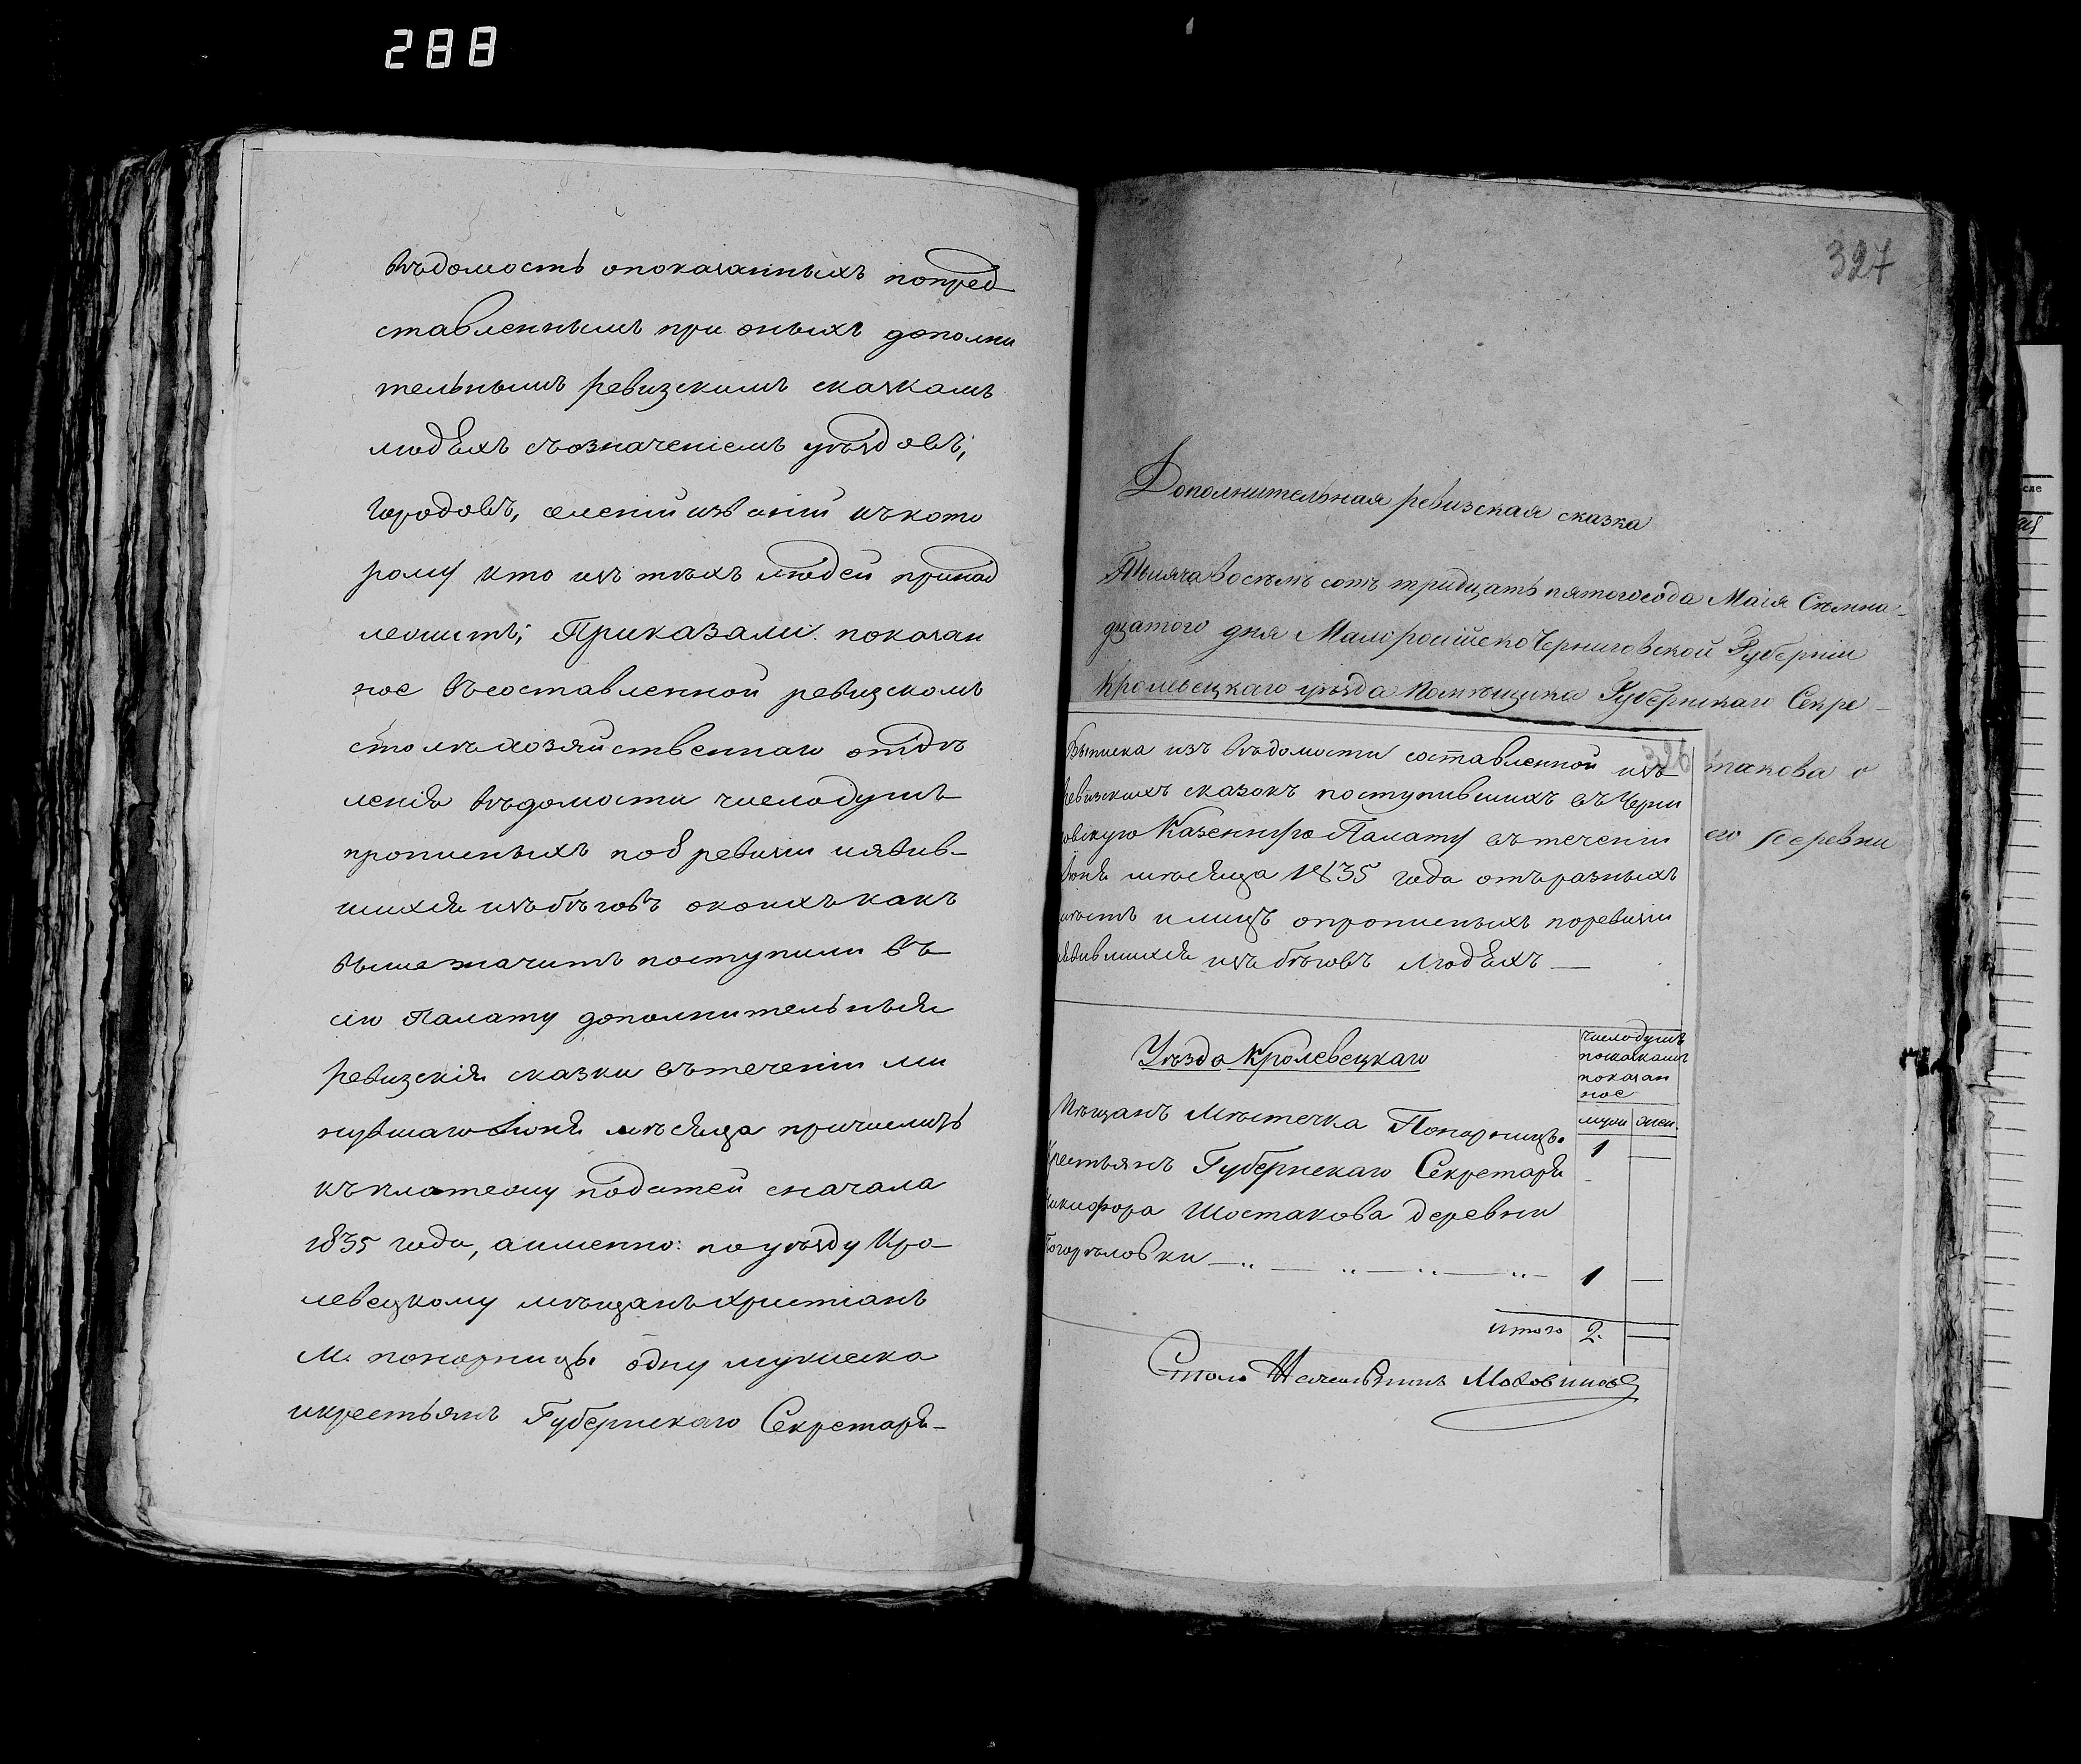 288
вѣдомость опоказанныхъ попред
ставленнымъ при оныхъ дополни
тельнымъ ревизскимъ сказкамъ
людяхъ съозначеніемъ уѣздовъ,
городовъ, селеній изваній икъкото
рому кто изъ тѣхъ людей принад
лежитъ; Приказали: показан
ное въсоставленной ревизскомъ
столѣ хозяйственнаго отдѣ
ленія вѣдомости числодушъ
прописныхъ по 8 ревизіи иявив-
шихся изъ бѣговъ окоихъ какъ
выше значитъ поступили въ
сію Палату дополнительныя
ревизскія сказки въ теченіи ми
нувшаго Іюня мѣсяца причислить
къ платежу податей сначала
1835 года, аименно: по уѣзду Кро
левецкому мѣщанъ христіанъ
М. понорницы одну мужеска
икрестьянъ Губернскаго Секретаря-
327
Дополнительная ревизская сказка
Тысяча восемъ сотъ тридцать пятого года Маія Семна-
дцатого дня Малоросійско Черниговской Губерніи
Кролевецкаго уѣзда Помѣщика Губернскаго Секре-
такова о
его деревни
Выписка изъ вѣдомости составленной изъ
ревизскихъ сказокъ поступившихъ въ Черни
говскую Казенную Палату въ теченіи
Іюня мѣсяца 1835 года отъ разныхъ
мѣстъ и лицъ опрописныхъ поревизіи
иявившихся изъ бѣговъ людяхъ —
Уѣзда Кролевецкаго
числодушъ
посказкамъ
показан
ное
муж жен.
Мѣщанъ Мѣстечка Понорницы. 1 —
Крестьянъ Губернскаго Секретаря
Никифора Шостакова деревни
Погорѣловки — „ — „ — „ — „ — 1 —
итого 2. —
Столо Начальникъ